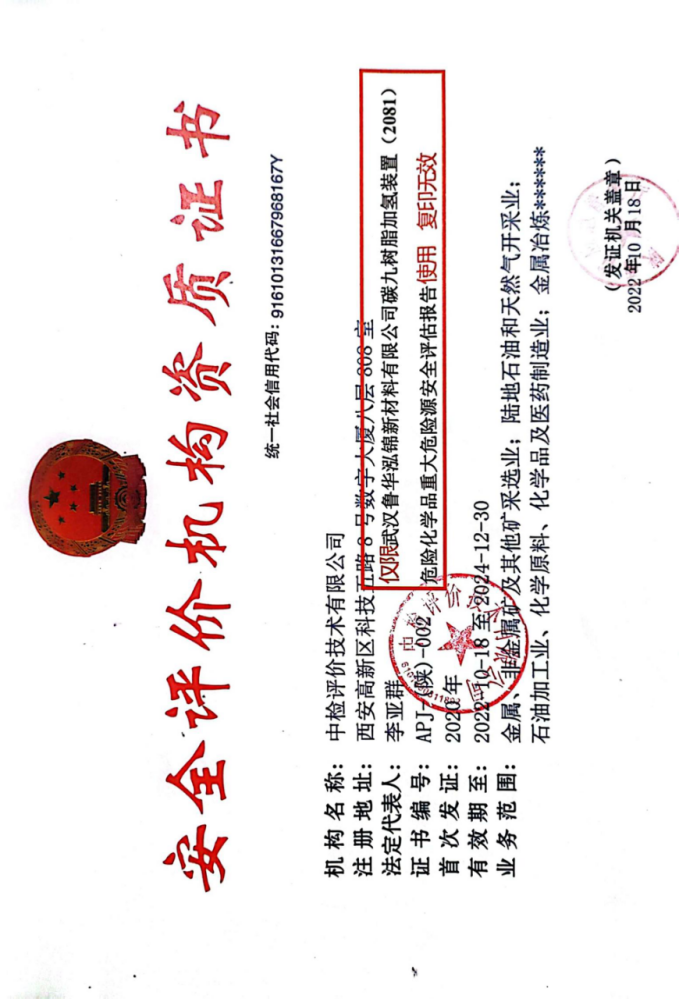 安全评价机构资质证书
统一社会信用代码：91610131667968167Y
机构名称：中检评价技术有限公司
注册地址：西安高新区科技五路8号数字大厦八层808室
仅限武汉鲁华泓锦新材料有限公司碳九树脂加氢装置（2081）
法定代表人：李亚群
危险化学品重大危险源安全评估报告使用 复印无效
证书编号：APJ-（陕）-002
首次发证：2020年
有效期至：2022-10-18至2024-12-30
业务范围：金属、非金属矿及其他矿采选业；陆地石油和天然气开采业；
石油加工业、化学原料、化学品及医药制造业；金属冶炼******
（发证机关盖章）
2022年10月18日